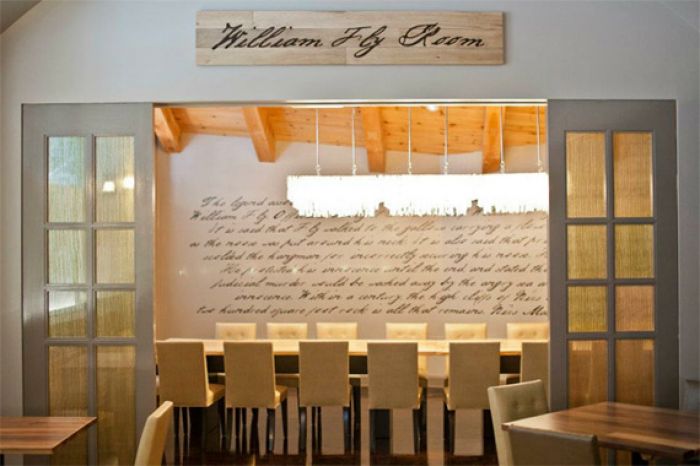 William Fly Room
The legend
William Fly
It is said that Fly walked to the gallows carrying a
as the noose was put around his neck. It is also said that
scolded the hangman for incorrectly securing his noose.
He protested his innocence until the end and stated
judicial murder would be washed away by the angry sea
innocence. Within a century the high cliffs of Nixs
two hundred square feet rock is all that remains. Nixs